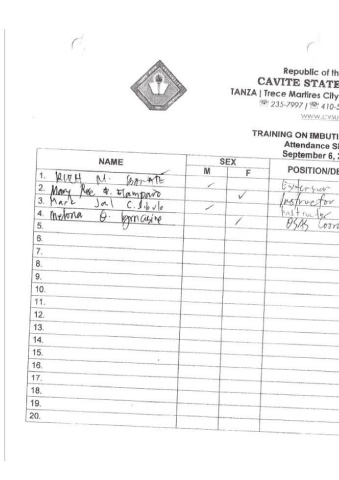 Republic of th
CAVITE STATE
TANZA | Trece Martires City
☏ 235-7997 | ☏ 410-5
www.cvsu
TRAINING ON IMBUTI
Attendance S
September 6, 2
NAME SEX POSITION/DE
M F
1. RUTH M. ✓ Extension
2. Mary Rose ✓ Instructor
3. Mark Jal C. ✓ Instructor
4. O. ✓ OSAS Coord
5.
6.
7.
8.
9.
10.
11.
12.
13.
14.
15.
16.
17.
18.
19.
20.